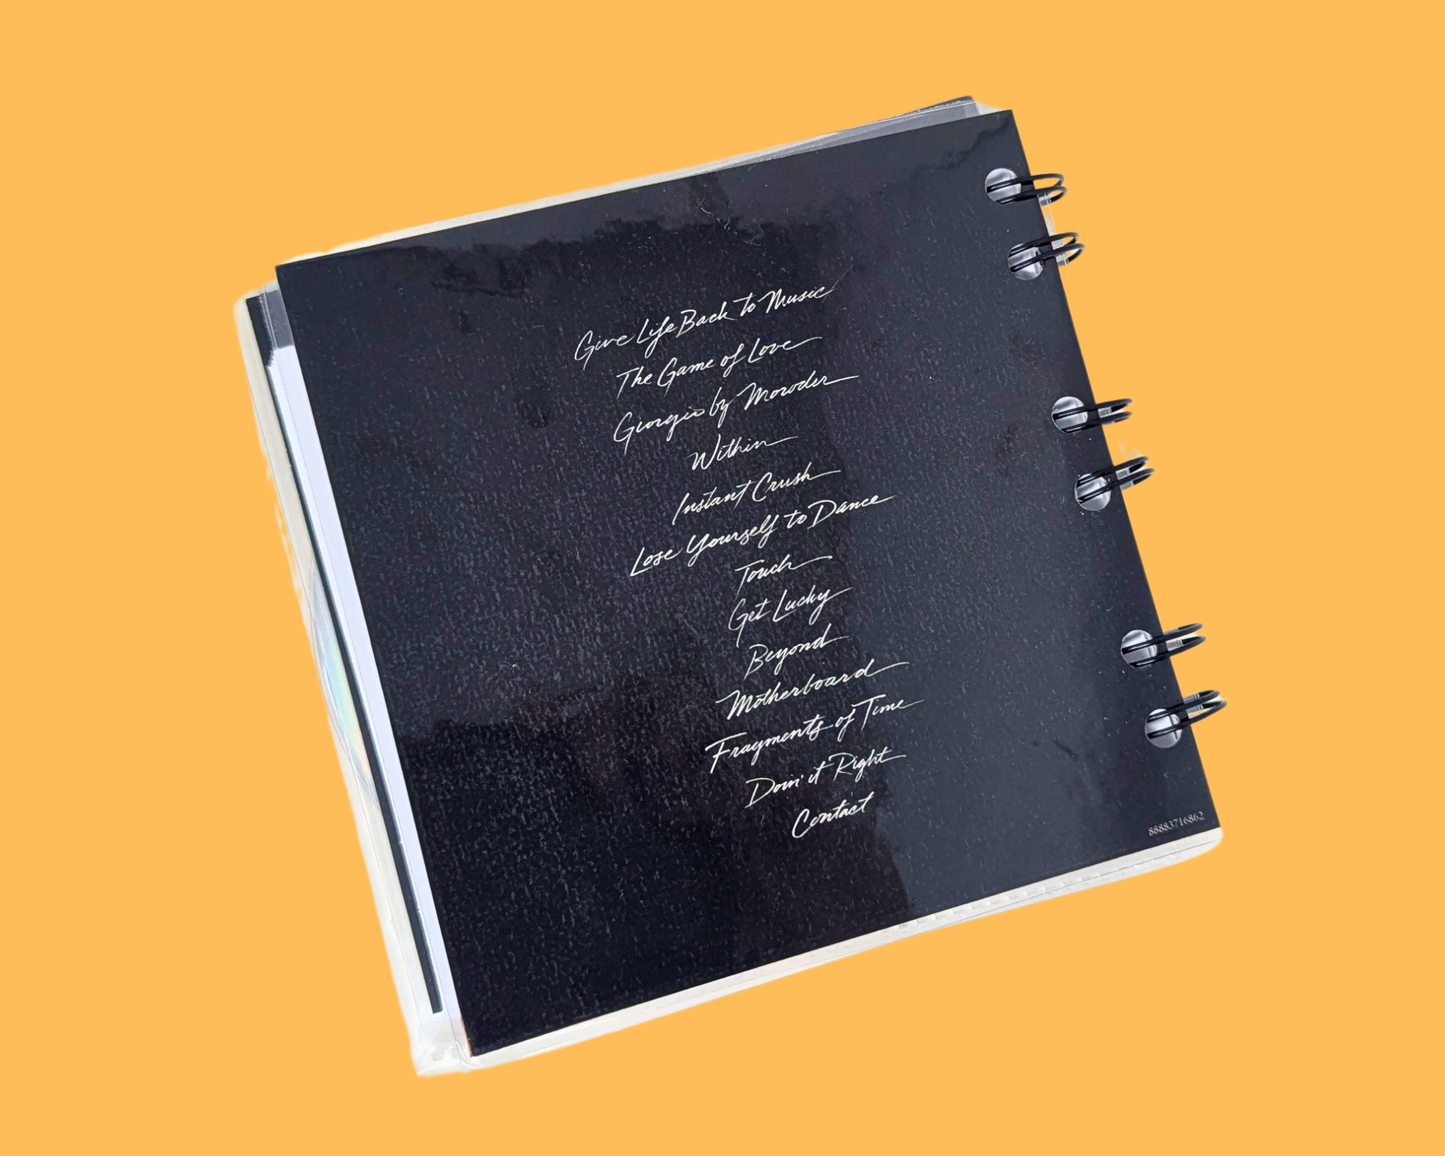 Give Life Back to Music
The Game of Love
Giorgio by Moroder
Within
Instant Crush
Lose Yourself to Dance
Touch
Get Lucky
Beyond
Motherboard
Fragments of Time
Doin' it Right
Contact
88883716862